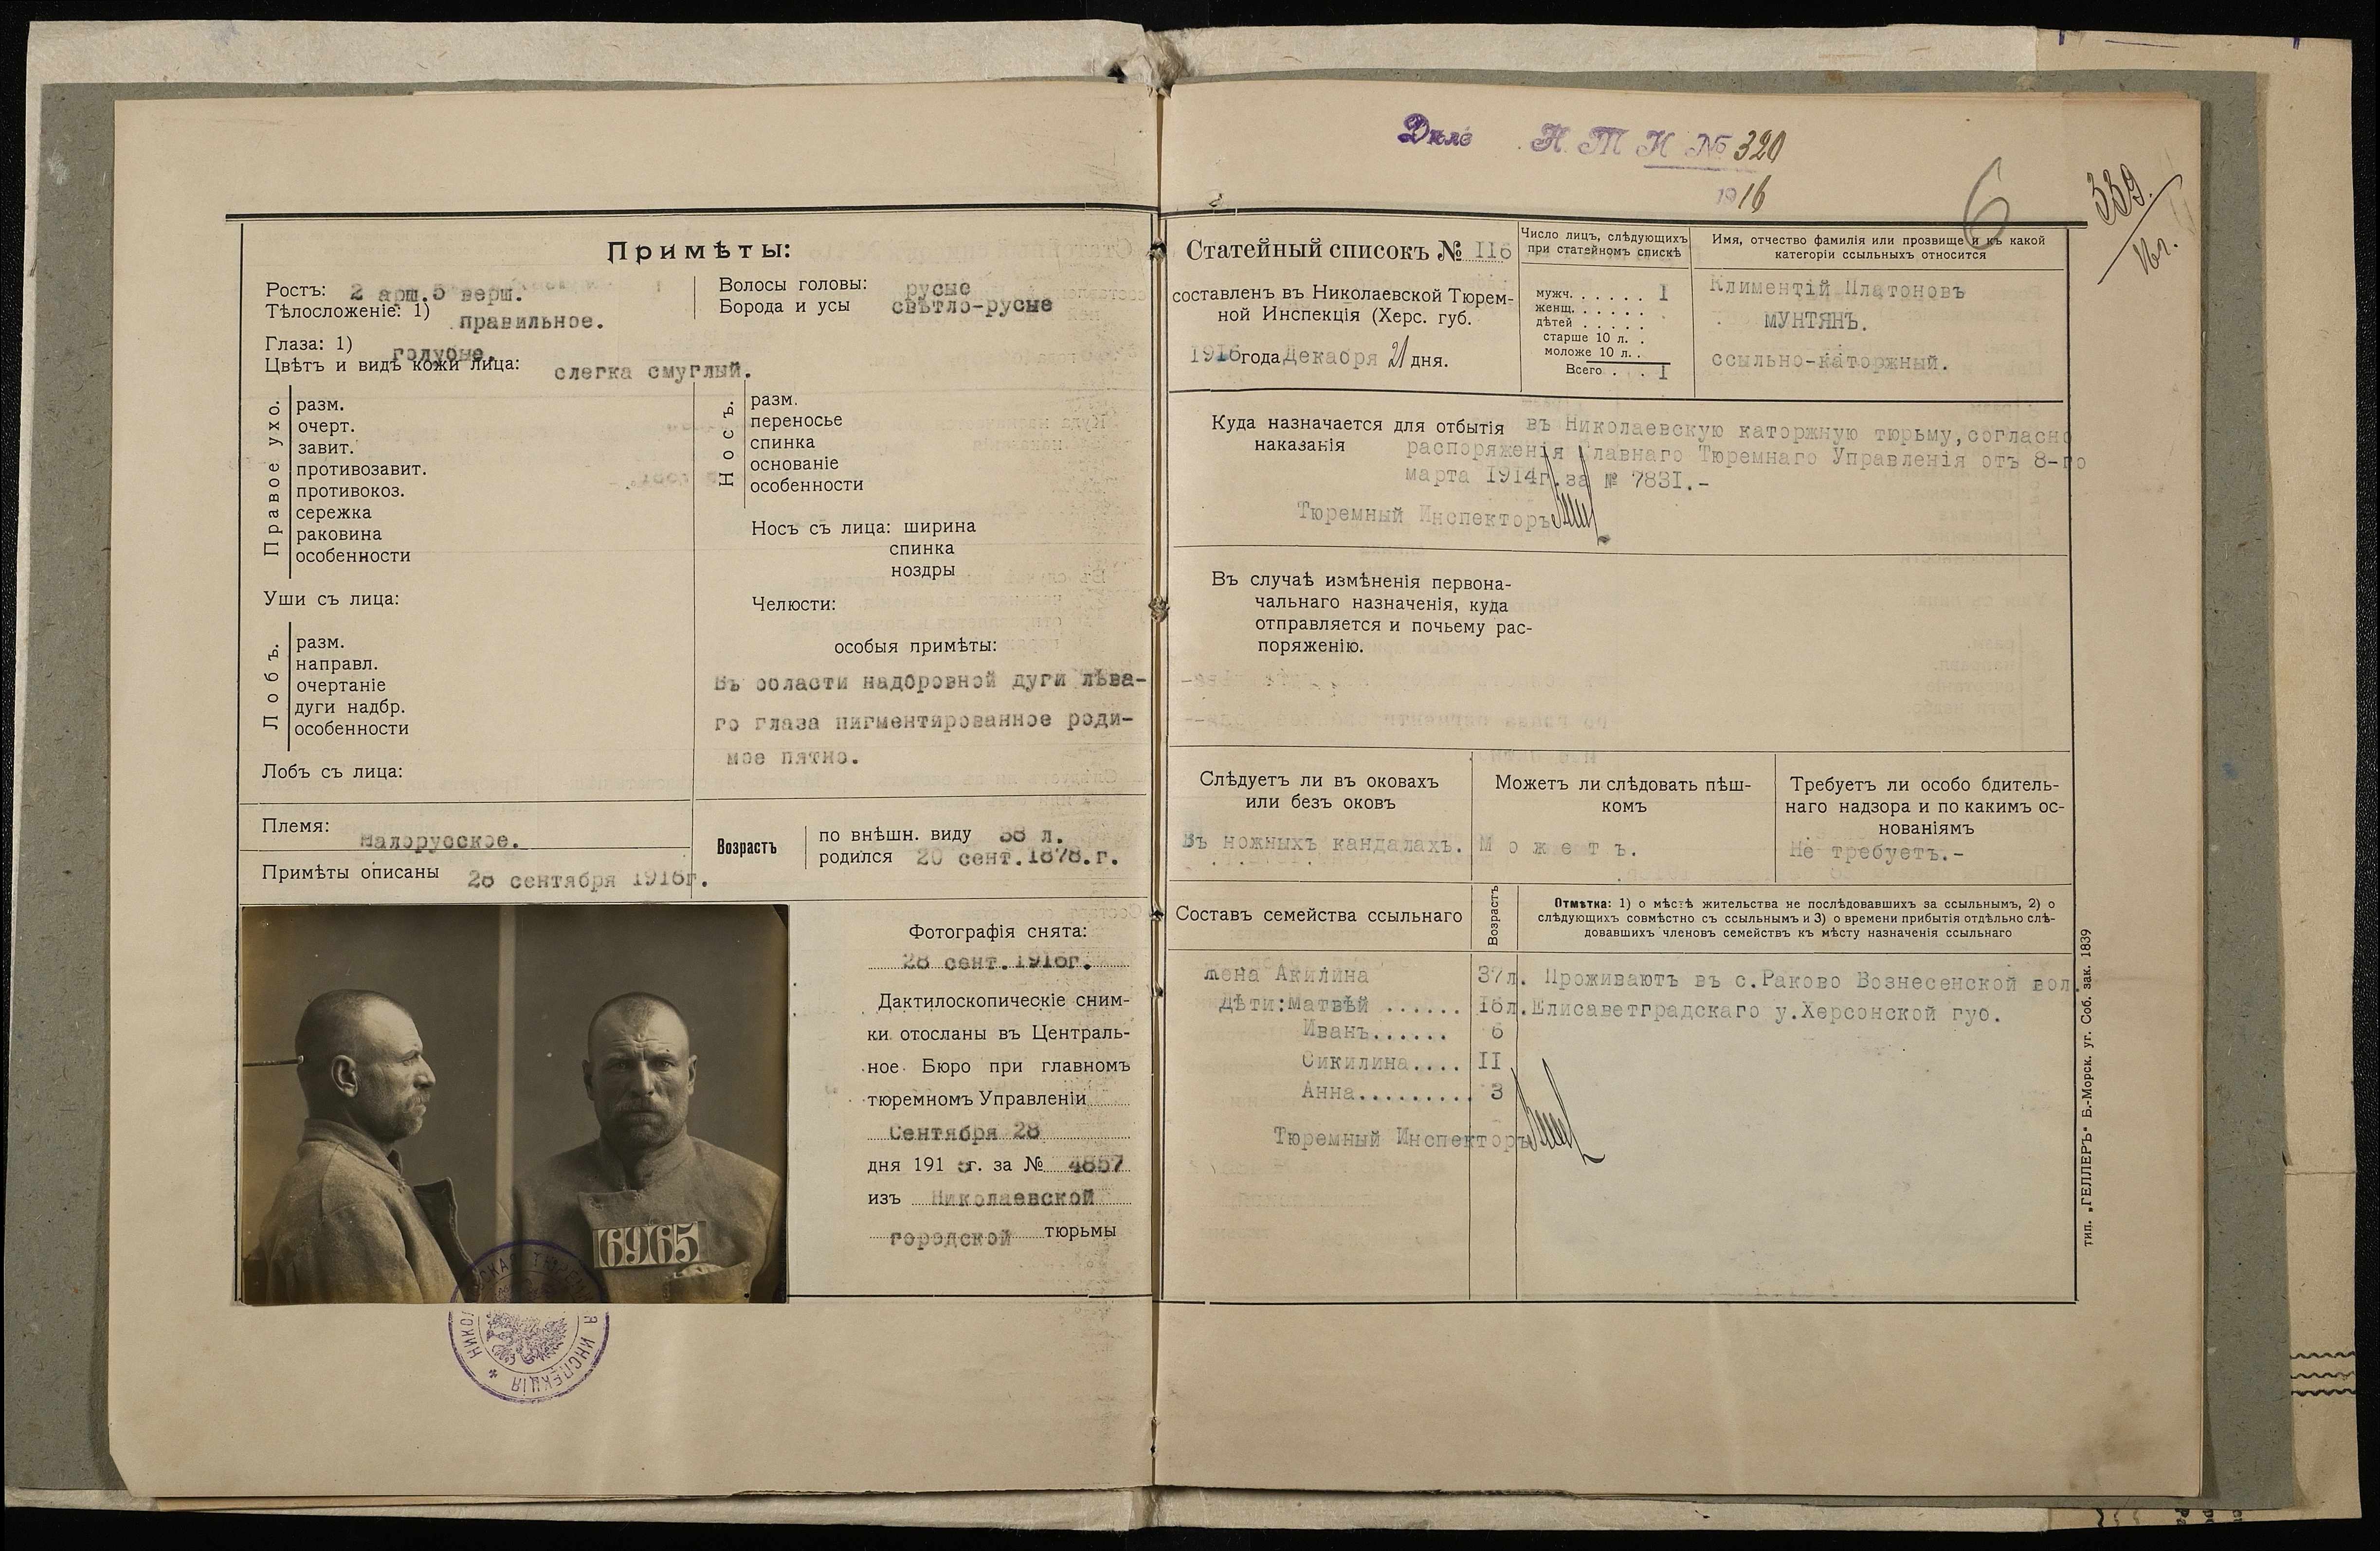 Примѣты:
Ростъ: 2 арш. 5 верш.
Тѣлосложеніе: 1) правильное.
Глаза: 1) голубые.
Цвѣтъ и видъ кожи лица: слегка смуглый.
Волосы головы: русые
Борода и усы свѣтло-русые
Правое ухо.
разм.
очерт.
завит.
противозавит.
противокоз.
сережка
раковина
особенности
Уши съ лица:
Лобъ.
разм.
направл.
очертаніе
дуги надбр.
особенности
Лобъ съ лица:
Носъ.
разм.
переносье
спинка
основаніе
особенности
Носъ съ лица: ширина
спинка
ноздры
Челюсти:
особыя примѣты:
Въ области надбровной дуги лѣва-
го глаза пигментированное роди-
мое пятно.
Племя: Малорусское.
Примѣты описаны 28 сентября 1916г.
Возрастъ
по внѣшн. виду 38 л.
родился 20 сент. 1878. г.
6965
НИКОЛАЕВСКАЯ ТЮРЕМНАЯ ИНСПЕКЦІЯ
Фотографія снята:
28 сент. 1916г.
Дактилоскопическіе сним-
ки отосланы въ Централь-
ное Бюро при главномъ
тюремномъ Управленіи
Сентября 28
дня 191 6г. за № 4857
изъ Николаевской
городской тюрьмы
Дѣло Н. Т. И № 320
1916
6
339.
16г.
Статейный списокъ № 116
составленъ въ Николаевской Тюрем-
ной Инспекція (Херс. губ.
1916 года Декабря 21 дня.
Число лицъ, слѣдующихъ
при статейномъ спискѣ
мужч. . . . . . I
женщ. . . . . .
дѣтей . . . . .
старше 10 л. .
моложе 10 л. .
Всего . . . I
Имя, отчество фамилія или прозвище и къ какой
категоріи ссыльныхъ относится
Климентій Платоновъ
МУНТЯНЪ.
ссыльно-каторжный.
Куда назначается для отбытія
наказанія
въ Николаевскую каторжную тюрьму, согласно
распоряженія Главнаго Тюремнаго Управленія отъ 8-го
марта 1914г. за № 7831.-
Тюремный Инспекторъ
Въ случаѣ измѣненія первона-
чальнаго назначенія, куда
отправляется и почьему рас-
поряженію.
Слѣдуетъ ли въ оковахъ
или безъ оковъ
Въ ножныхъ кандалахъ.
Можетъ ли слѣдовать пѣш-
комъ
Можетъ.
Требуетъ ли особо бдитель-
наго надзора и по какимъ ос-
нованіямъ
Не требуетъ.-
Составъ семейства ссыльнаго
Возрастъ
Отмѣтка: 1) о мѣстѣ жительства не послѣдовавшихъ за ссыльнымъ, 2) о
слѣдующихъ совмѣстно съ ссыльнымъ и 3) о времени прибытія отдѣльно слѣ-
довавшихъ членовъ семействъ къ мѣсту назначенія ссыльнаго
жена Акилина 37л. Проживаютъ въ с. Раково Вознесенской вол.
Дѣти: Матвѣй ...... 16л. Елисаветградскаго у. Херсонской губ.
Иванъ...... 6
Сикилина.... II
Анна......... 3
Тюремный Инспекторъ
тип. „ГЕЛЛЕРЪ“ Б.-Морск. уг. Соб. зак. 1839